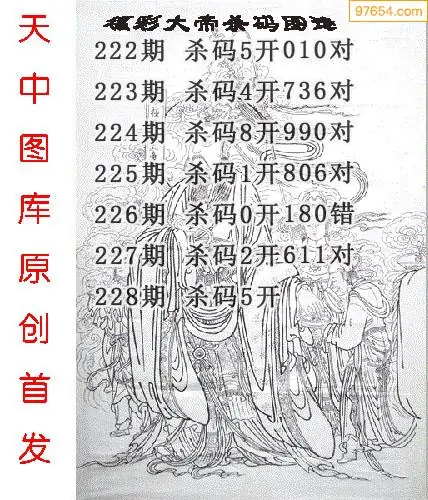 97654.com
福彩大帝杀码图谜
222期 杀码5开010对
223期 杀码4开736对
224期 杀码8开990对
225期 杀码1开806对
226期 杀码0开180错
227期 杀码2开611对
228期 杀码5开
天中图库原创首发